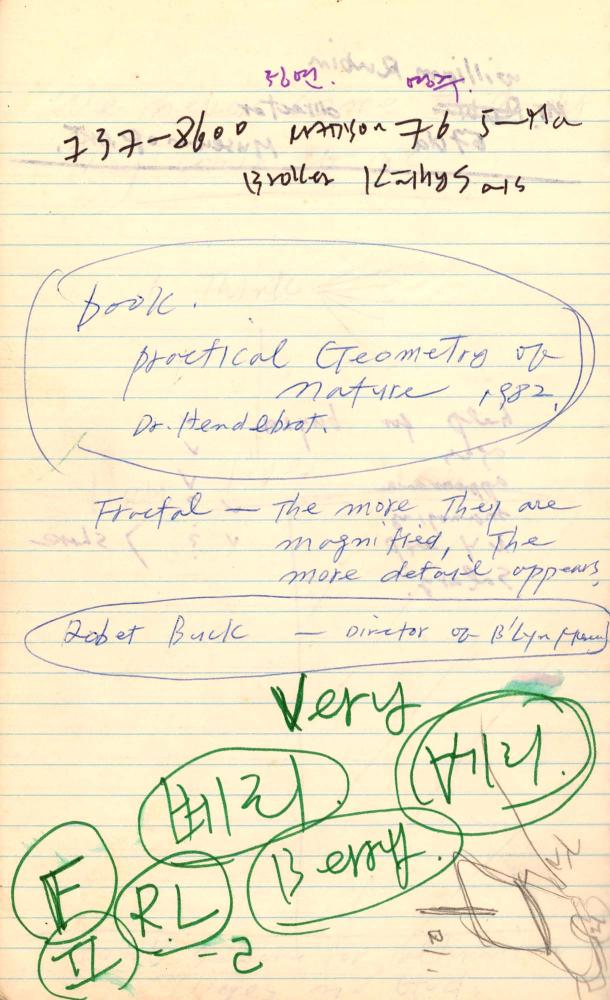 정연. 영주.
737-8600 Madison 76 5-
Broller Kathy
book.
practical Geometry of
nature , 1982,
Dr. Hendebrot.
Fractal — The more They are
magnified, The
more detail appears,
Robet Buck — Director of B'Lyn
Very
베리.
뻬리.
Berry.
F
RL